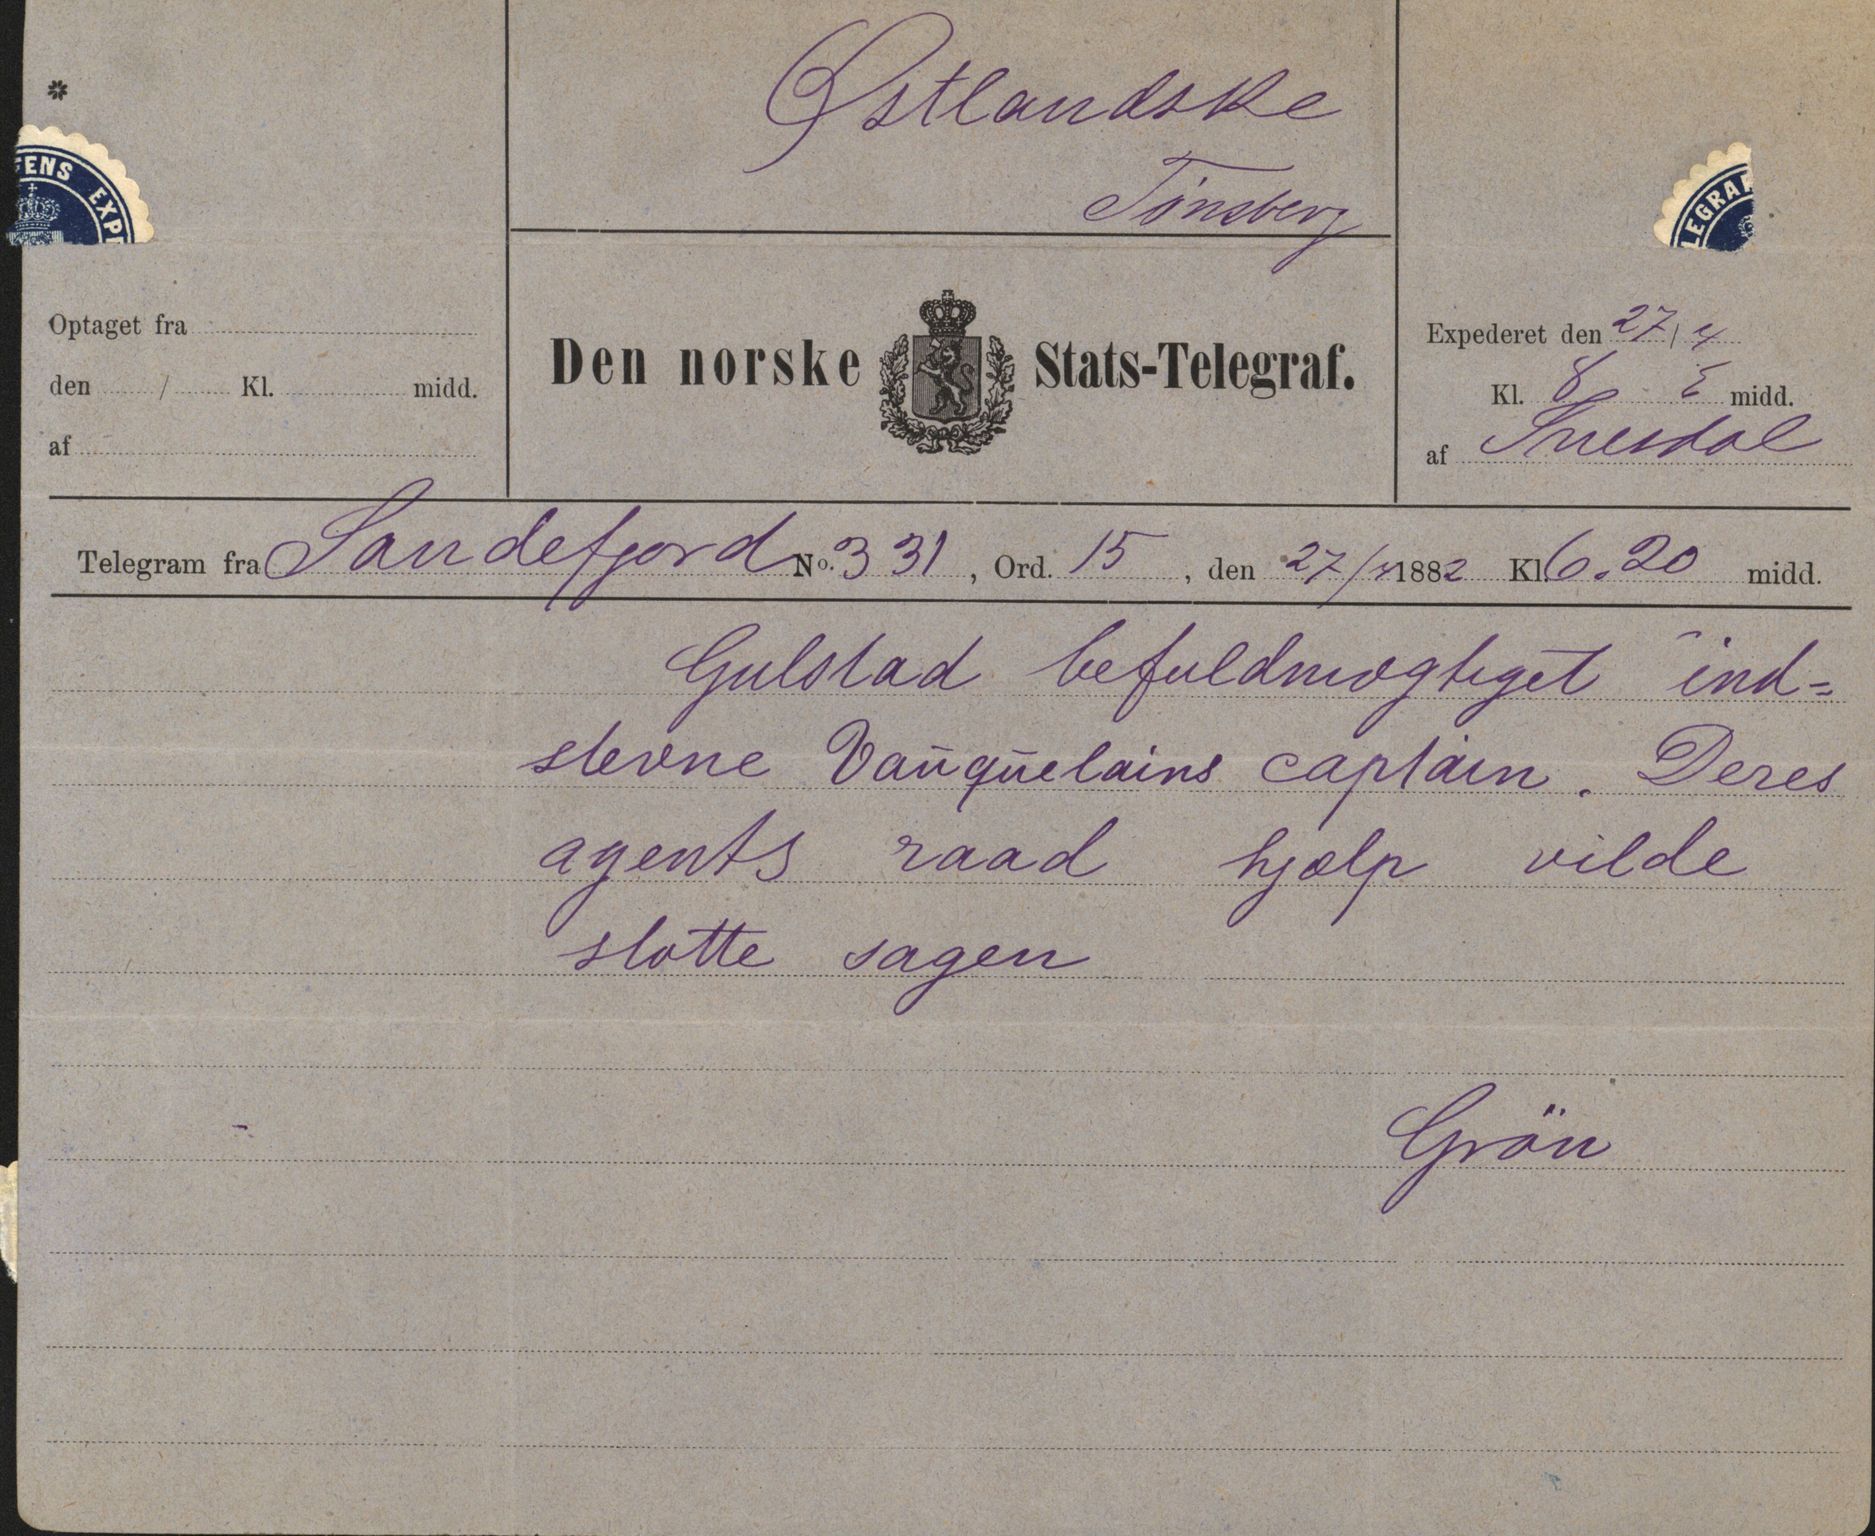 Østlandske
Tönsberg
*
GENS EXPE
LEGRAF
Optaget fra
den / Kl. midd.
af
Den norske Stats-Telegraf.
Expederet den 27/4
Kl. 8 E midd.
af
Telegram fra Sandefjord No. 331, Ord. 15, den 27/4 1882 Kl. 6.20 midd.
Gulstad befuldmægtiget ind=
stevne Vauquelains captain. Deres
agents raad hjælp vilde
støtte sagen
Grön